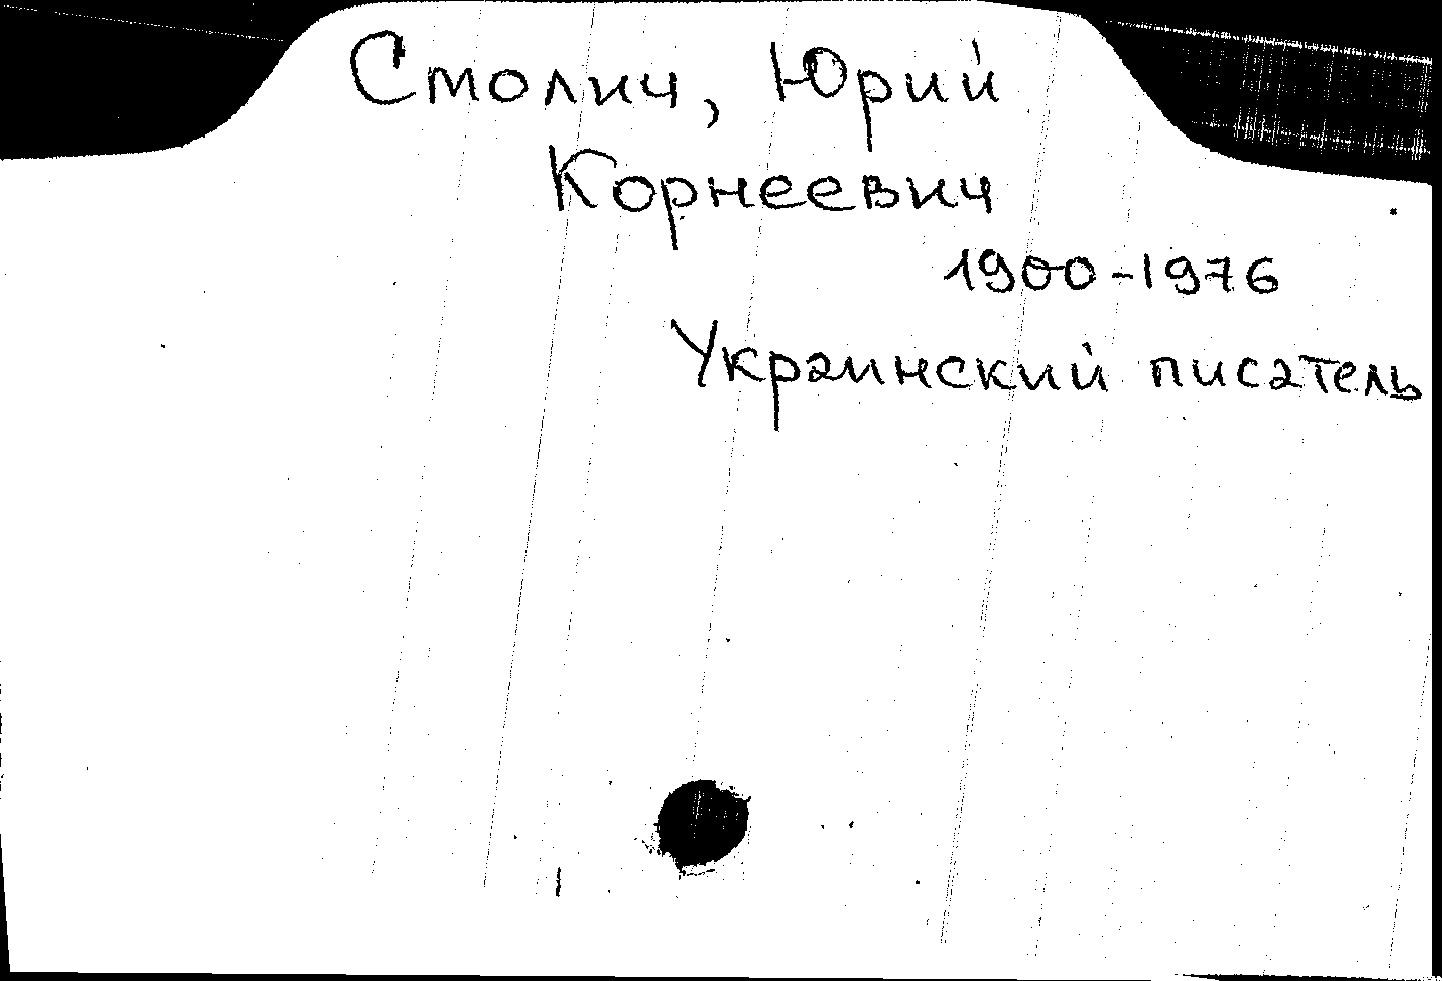 Столич, Юрий
Корнеевич
1900-1976
Украинский писатель